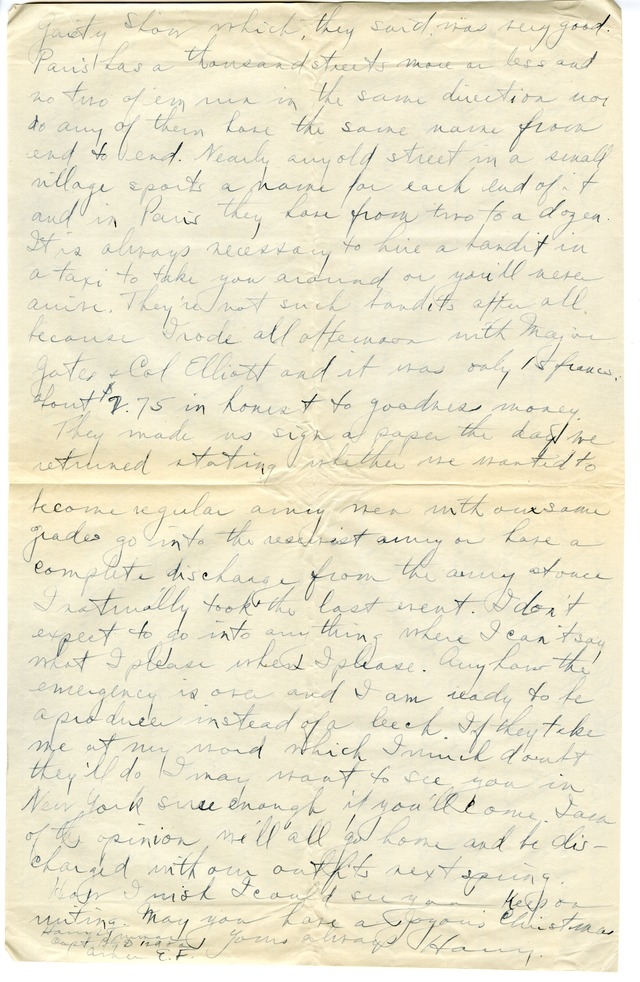 Gaiety show which, they said, was very good.
Paris has a thousand streets more or less and
no two of em run in the same direction nor
do any of them have the same name from
end to end. Nearly any old street in a small
village sports a name for each end of it
and in Paris they have from two to a dozen.
It is always necessary to hire a bandit in
a taxi to take you around or you'll never
arive. They're not such bandits after all
because I rode all afternoon with Major
Gates & Col Elliott and it was only 15 francs.
about $2.75 in honest to goodness money.
They made us sign a paper the day we
returned stating whether we wanted to
become regular army men with our same
grades go into the reservist army or have a
complete discharge from the army at once
I naturally took the last event. I don't
expect to go into anything where I can't say
what I please when I please. Anyhow the
emergency is over and I am ready to be
a producer instead of a leech. If they take
me at my word which I much doubt
they'll do I may want to see you in
New York sure enough if you'll come. I am
of the opinion we'll all go home and be dis-
charged with our outfits next spring.
How I wish I could see you Keep on
writing. May you have a Joyous Christmas
Yours always Harry.
Harry Truman
Capt Bty D 129 F.A.
A.E.F.